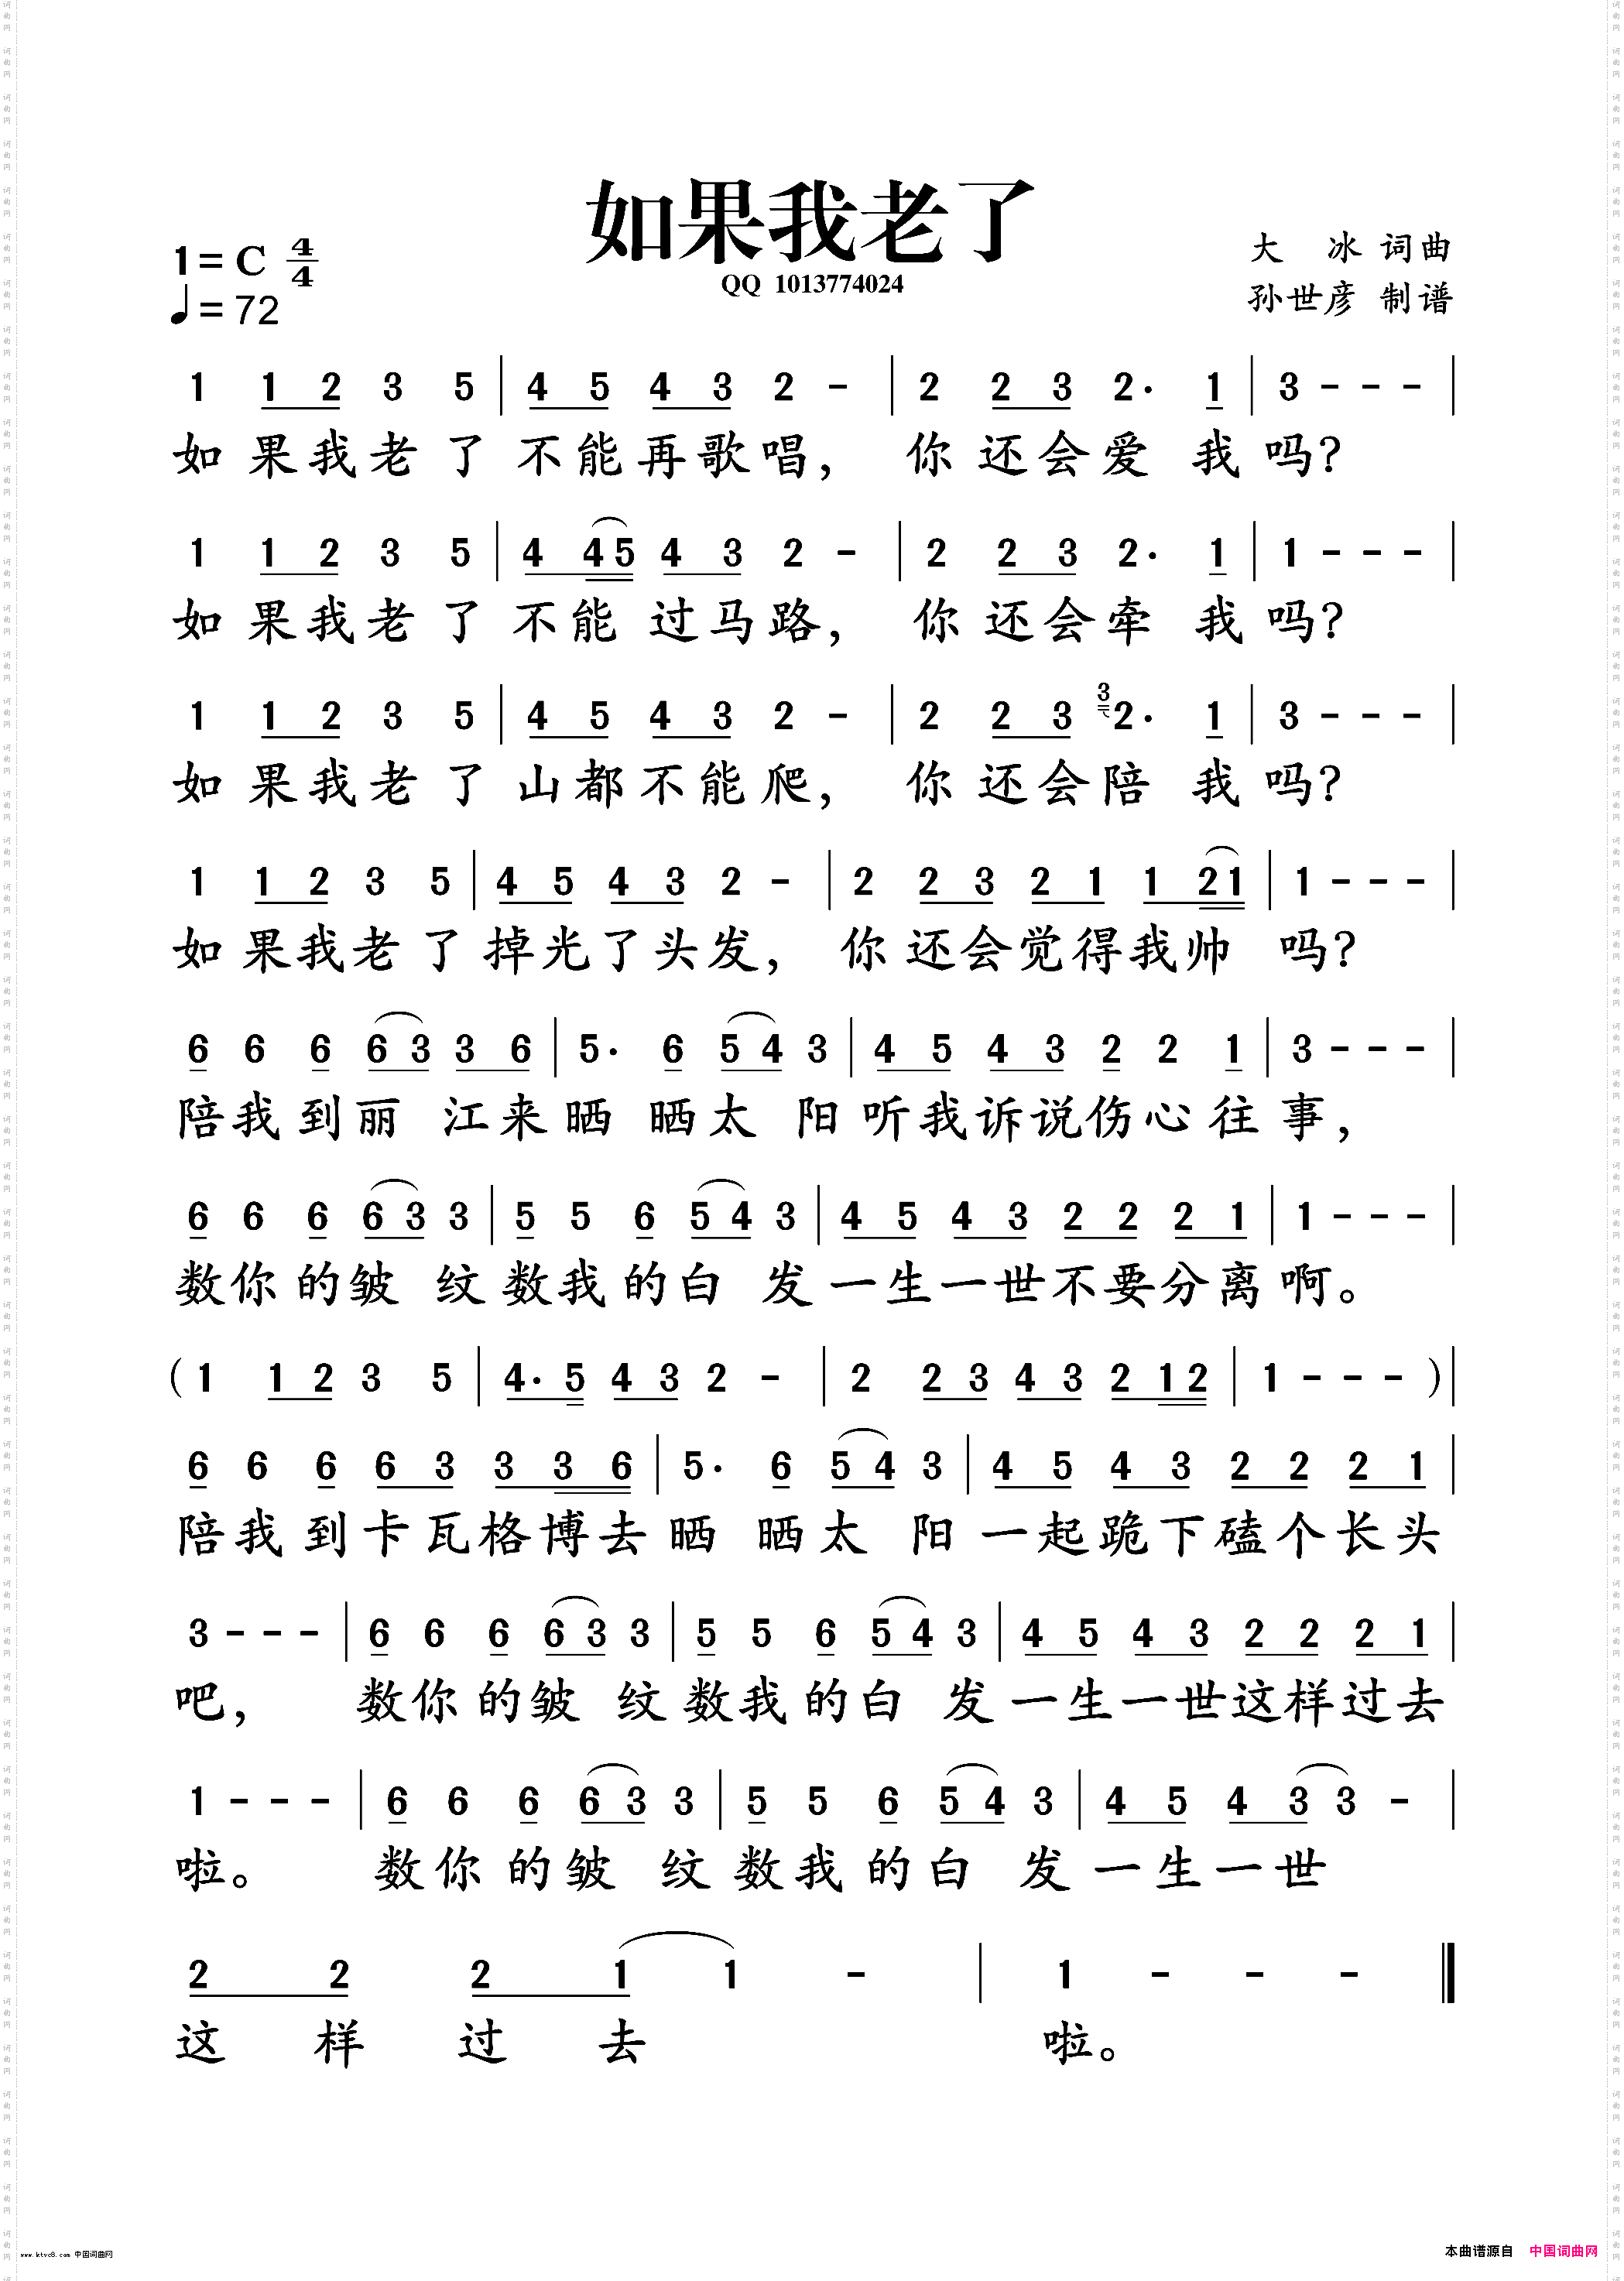 如果我老了
QQ 1013774024
1= C 4/4
♩= 72
大 冰 词曲
孙世彦 制谱
1 1 2 3 5 | 4 5 4 3 2 - | 2 2 3 2· 1 | 3 - - - |
如果我老了不能再歌唱, 你还会爱我吗?
1 1 2 3 5 | 4 4 5 4 3 2 - | 2 2 3 2· 1 | 1 - - - |
如果我老了不能过马路, 你还会牵我吗?
1 1 2 3 5 | 4 5 4 3 2 - | 2 2 3 3 2· 1 | 3 - - - |
如果我老了山都不能爬, 你还会陪我吗?
1 1 2 3 5 | 4 5 4 3 2 - | 2 2 3 2 1 1 2 1 | 1 - - - |
如果我老了掉光了头发, 你还会觉得我帅 吗?
6 6 6 6 3 3 6 | 5· 6 5 4 3 | 4 5 4 3 2 2 1 | 3 - - - |
陪我到丽 江来晒 晒太 阳听我诉说伤心往事,
6 6 6 6 3 3 | 5 5 6 5 4 3 | 4 5 4 3 2 2 2 1 | 1 - - - |
数你的皱 纹数我的白 发一生一世不要分离啊。
( 1 1 2 3 5 | 4· 5 4 3 2 - | 2 2 3 4 3 2 1 2 | 1 - - - ) |
6 6 6 6 3 3 3 6 | 5· 6 5 4 3 | 4 5 4 3 2 2 2 1 |
陪我到卡瓦格博去晒 晒太 阳一起跪下磕个长头
3 - - - | 6 6 6 6 3 3 | 5 5 6 5 4 3 | 4 5 4 3 2 2 2 1 |
吧, 数你的皱 纹数我的白 发一生一世这样过去
1 - - - | 6 6 6 6 3 3 | 5 5 6 5 4 3 | 4 5 4 3 3 - |
啦。 数你的皱 纹数我的白 发一生一世
2 2 2 1 1 - | 1 - - - ‖
这样过去 啦。
www.ktvc8.com 中国词曲网
本曲谱源自 中国词曲网